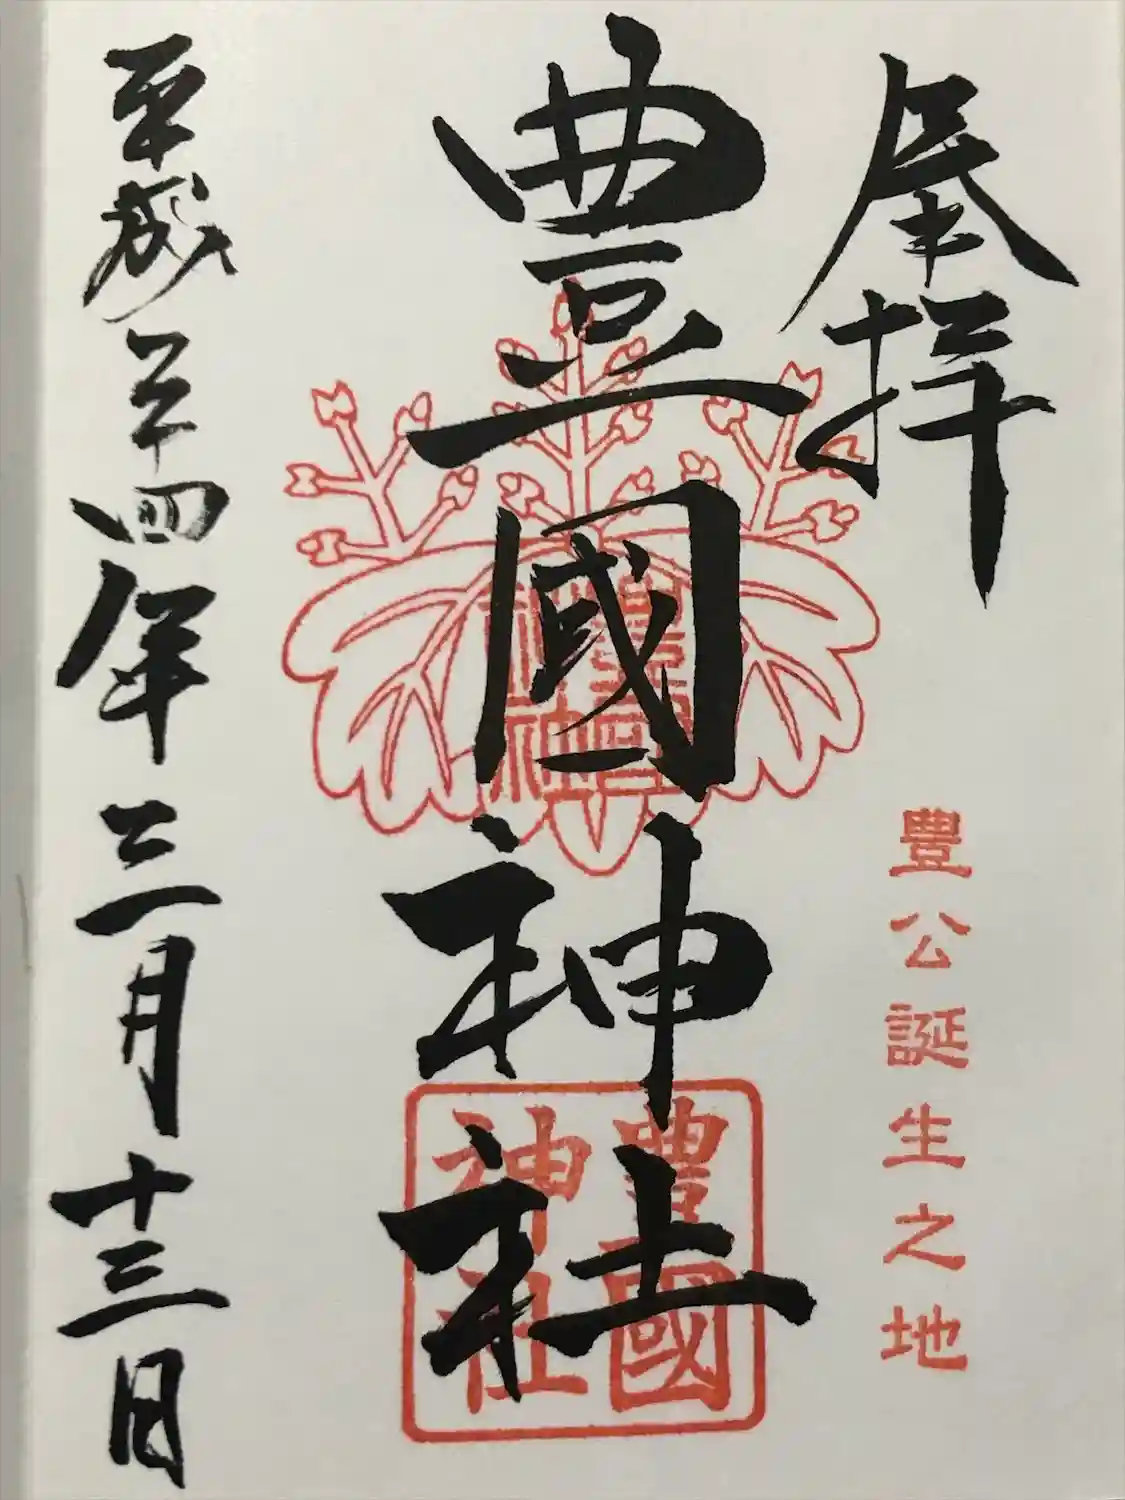 奉拝
豊公誕生之地
豊國神社
豊國
神社
豊國
神社
平成二十四年三月十三日